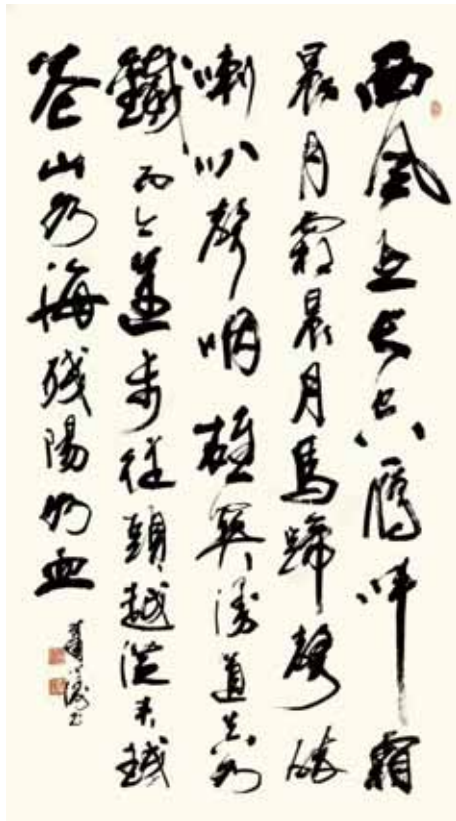 西風烈長空雁叫霜
晨月霜晨月馬蹄聲碎
喇叭聲咽雄關漫道真如
鐵而今邁步從頭越從頭越
蒼山如海殘陽如血